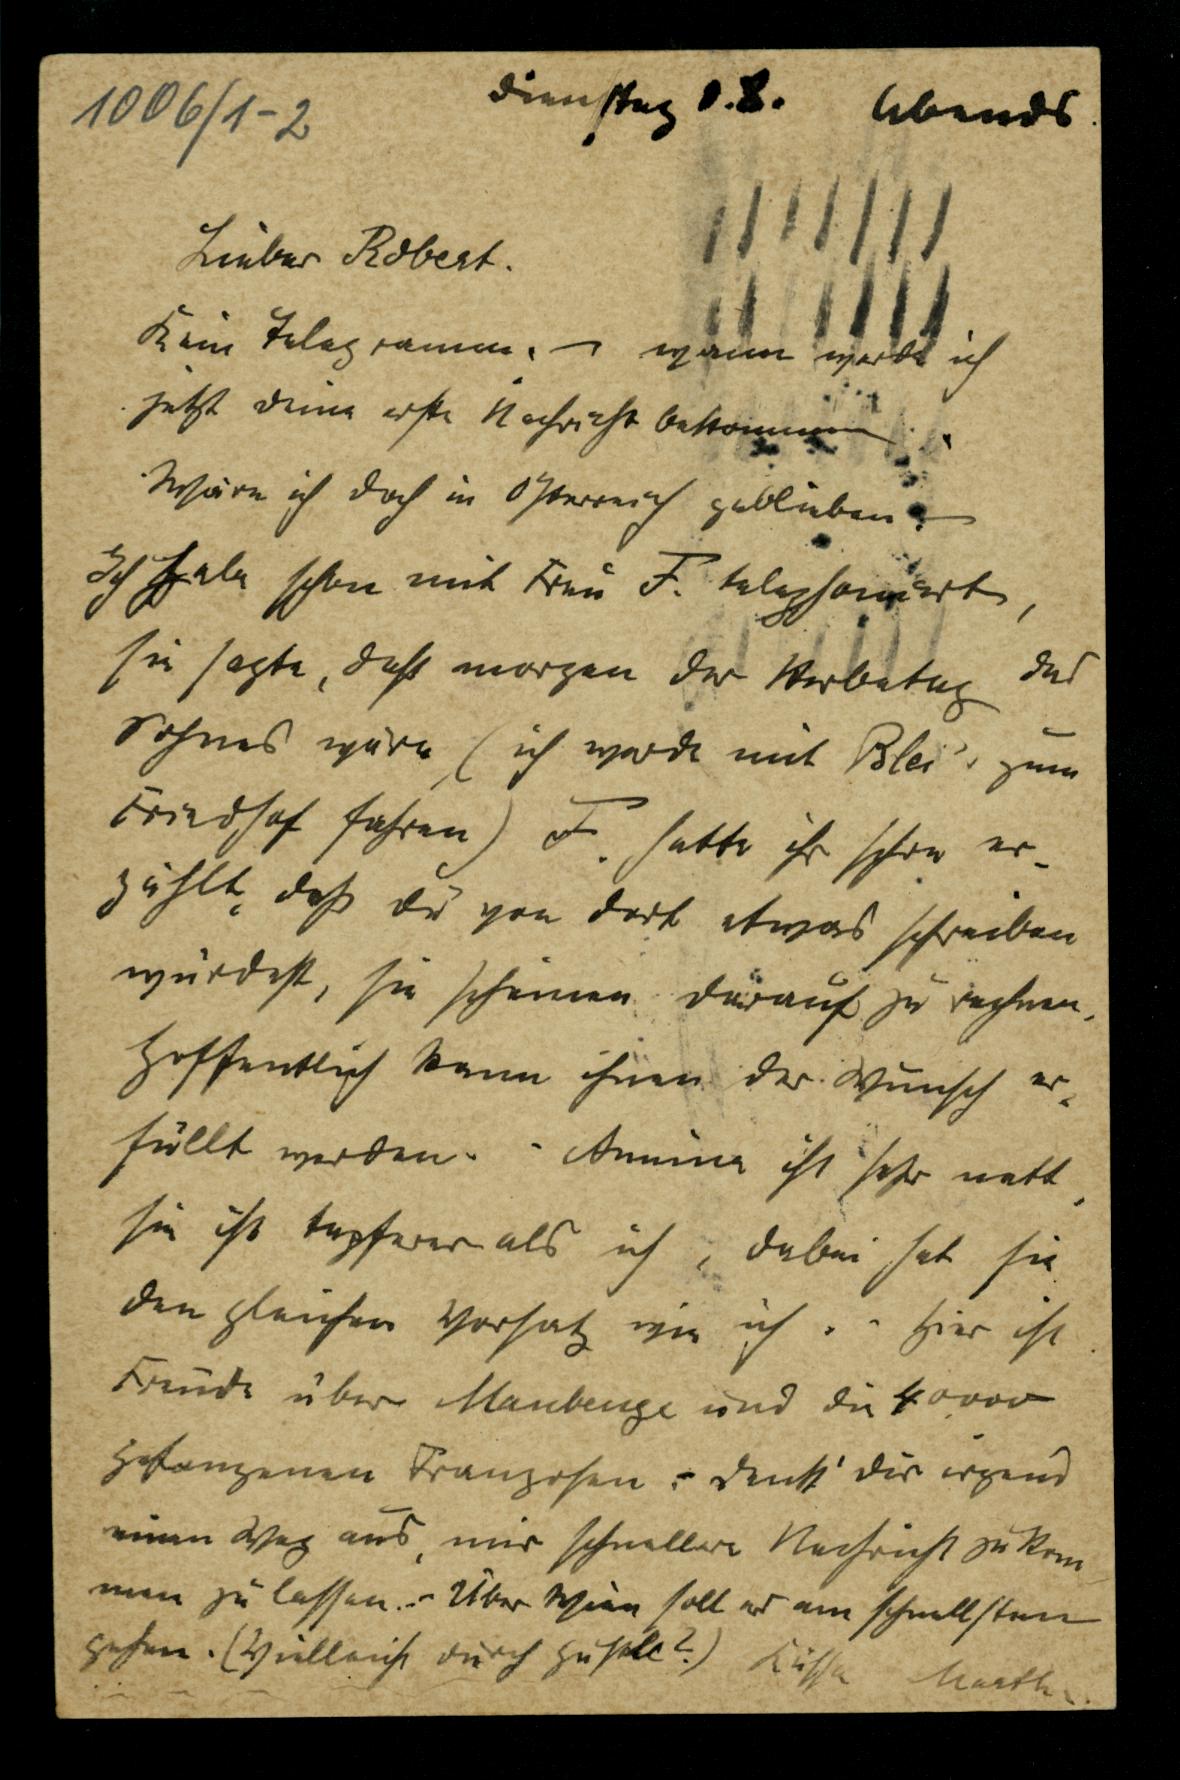 1006/1-2
Dienstag 8. Abends.
Lieber Robert.
Kein Telegramm. – wann werde ich
jetzt deine erste Nachricht bekommen.
Wäre ich doch in Österreich geblieben. –
Ich habe schon mit Frau F. telephoniert,
sie sagte, daß morgen der Sterbetag des
Sohnes wäre (ich werde mit Blei's zum
Friedhof fahren) F. hatte ihr schon er-
zählt, daß du von dort etwas schreiben
würdest, sie scheinen darauf zu rechnen.
Hoffentlich kann ihnen der Wunsch er-
füllt werden. - Annina ist sehr nett,
sie ist tapferer als ich, dabei hat sie
den gleichen Vorsatz wie ich. - Hier ist
Freude über Maubeuge und die 40000
gefangenen Franzosen. - Denk' dir irgend
einen Weg aus, mir schnellere Nachricht zu kom-
men zu lassen. - Über Wien soll es am schnellsten
gehen. (Vielleicht durch ) Küsse Martha.